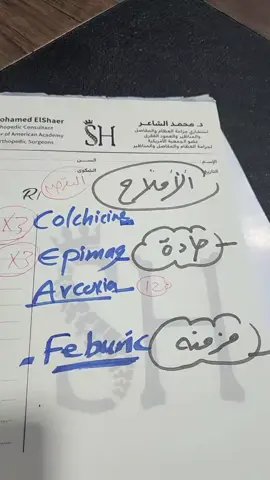 د. محمد الشاعر
استشاري جراحة العظام والمفاصل
والمناظير والعمود الفقري
عضو الجمعية الأمريكية
لجراحة العظام والمفاصل والمناظير
ohamed ElShaer
hopedic Consultant
r of American Academy
rthopedic Surgeons
SH
الإسم
السن
التاريخ
الشكوى
R/
الأملاح
X3 Colchicine
X3 Epimag
حادة
Arcoxia 120
Feburic
مزمنة